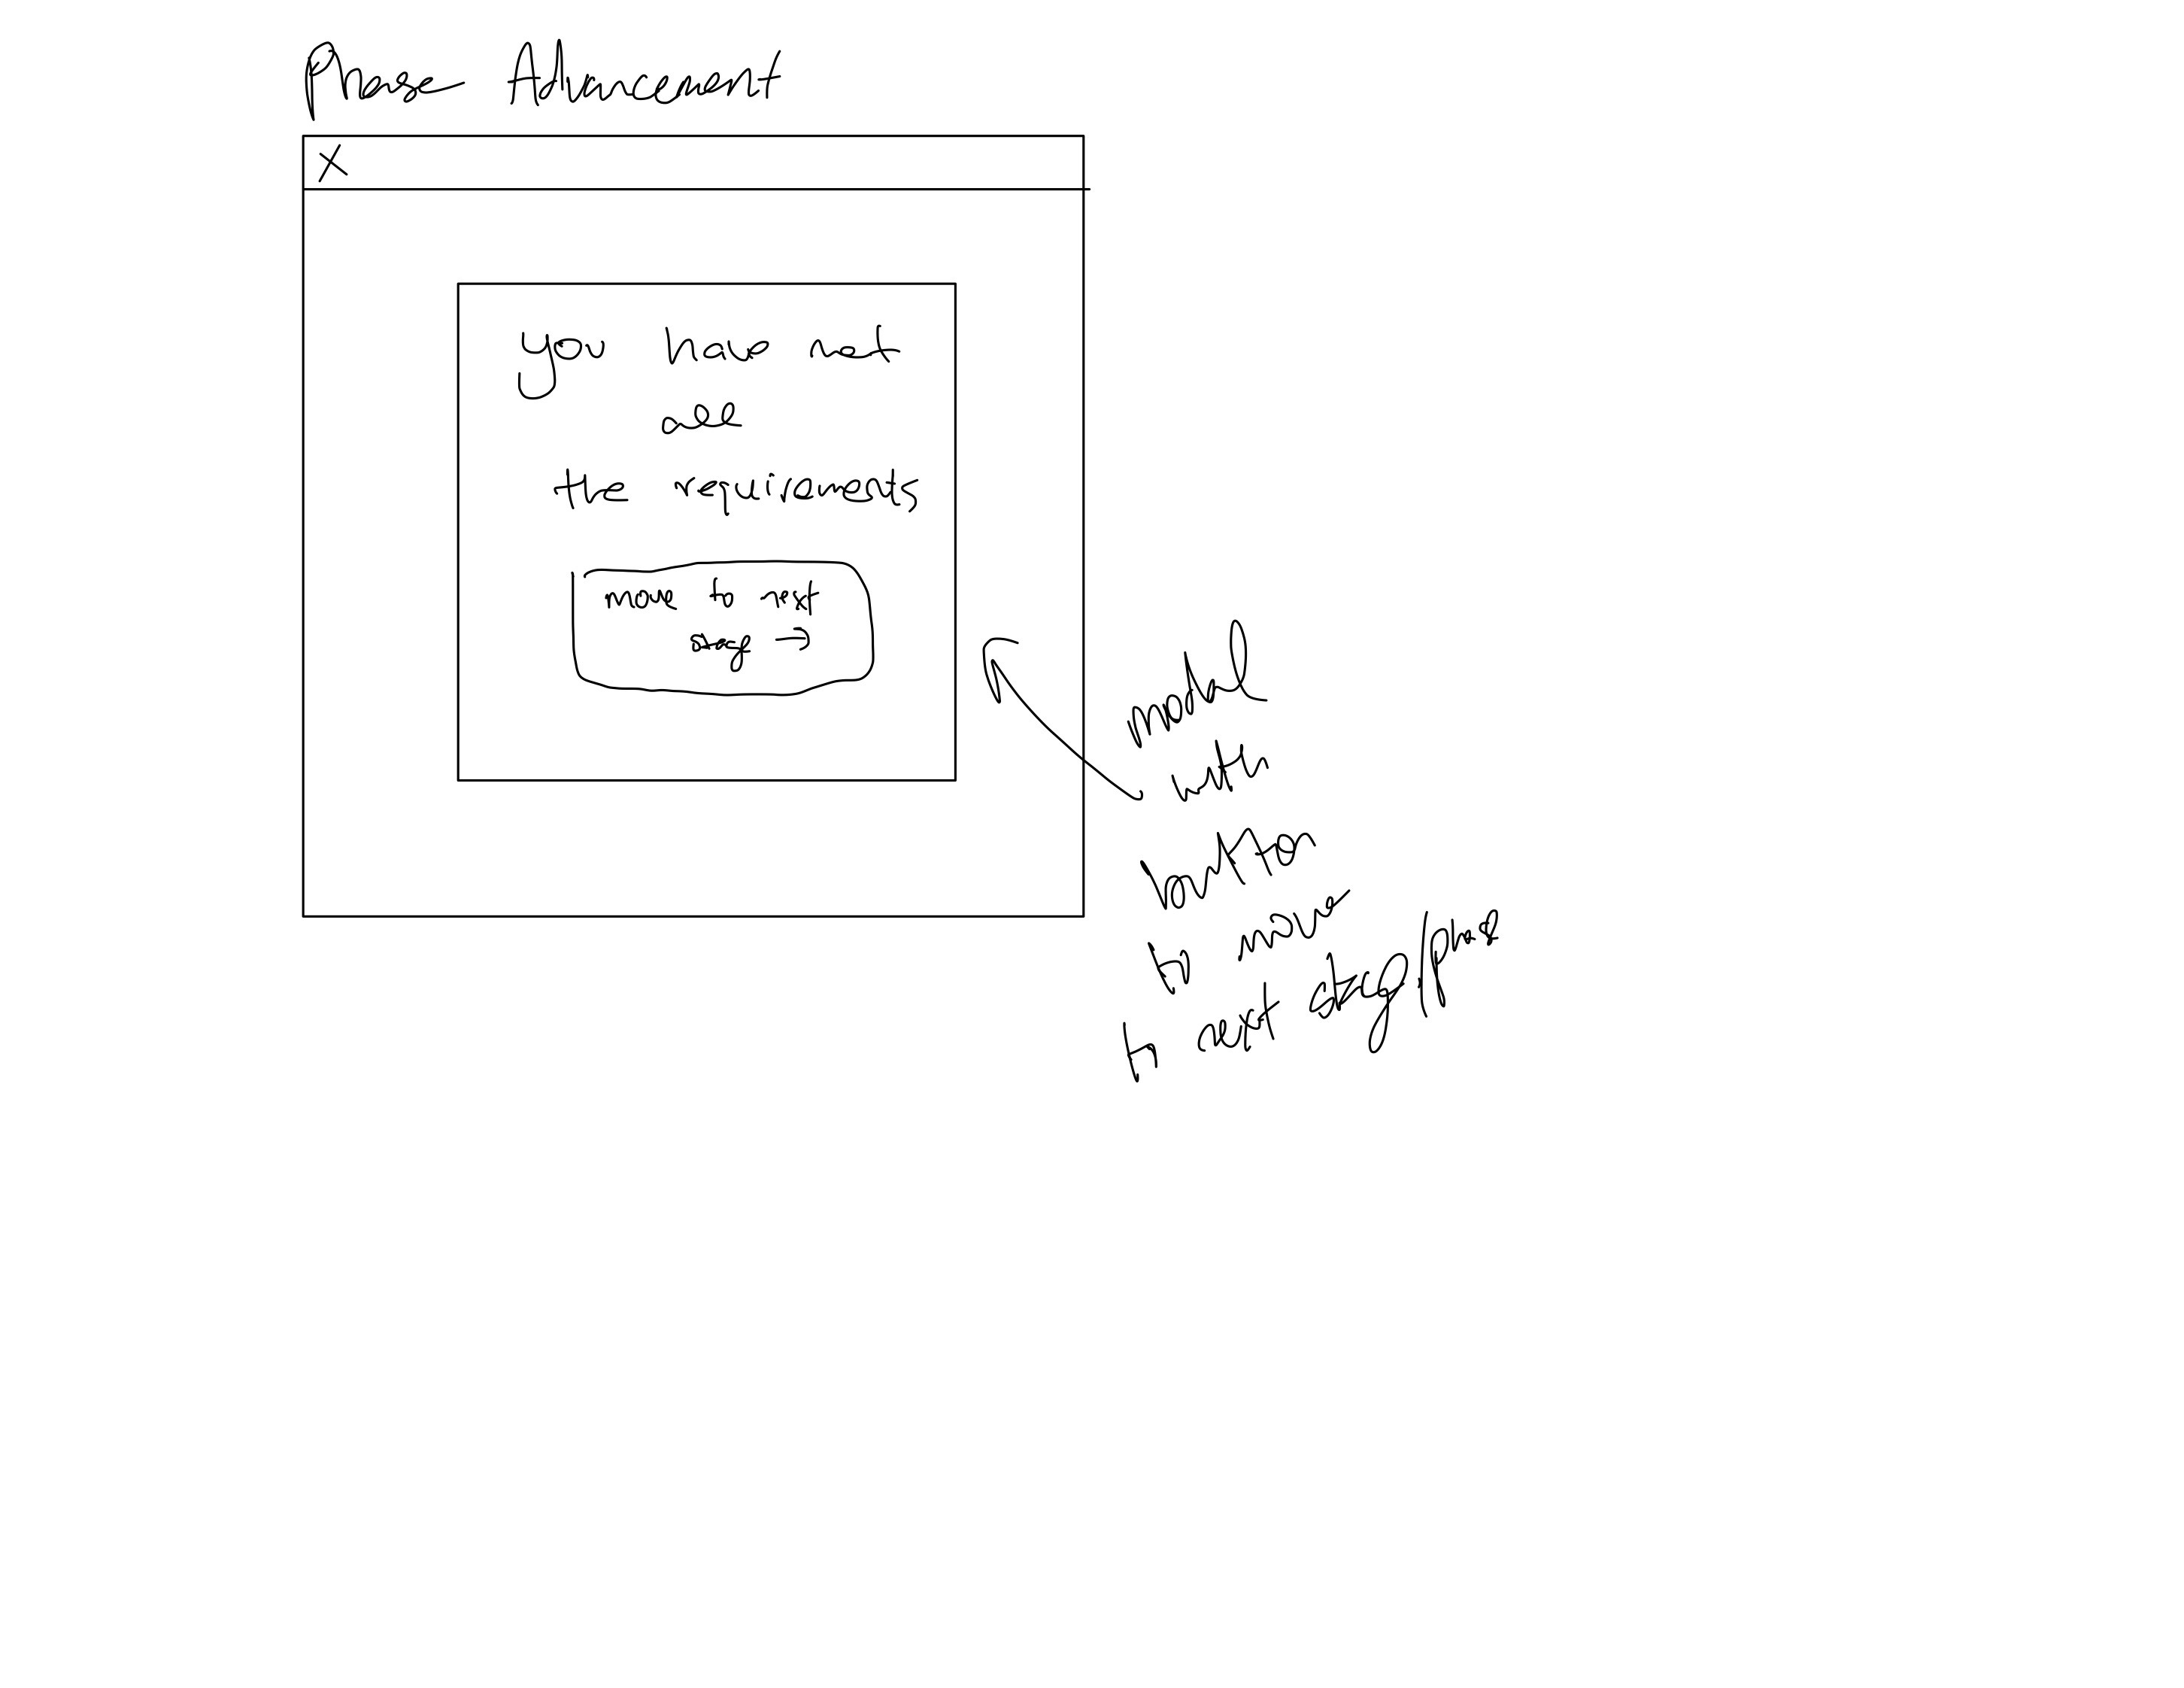 Phase Advancement
X
you have met
all
the requirements
move to next
stage →
modal
with
button
to move
to next stage/phase